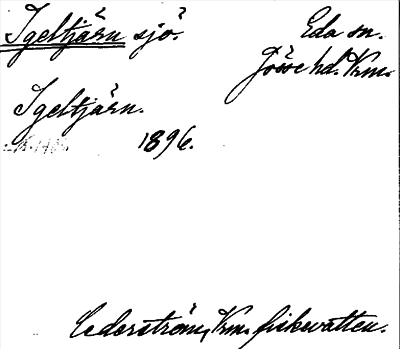 Igeltjärn sjö.
Eda sn.
Jösse hd. Vrm.
Igeltjärn.
1896.
Cederström, Vrm. fiskevatten.